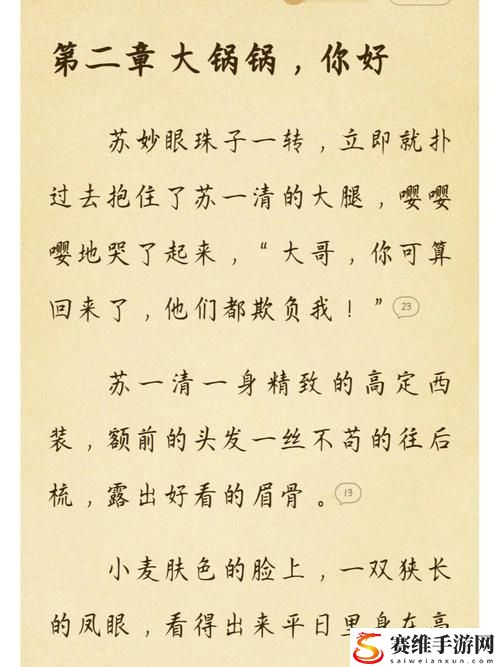 第二章 大锅锅，你好
苏妙眼珠子一转，立即就扑
过去抱住了苏一清的大腿，嘤嘤
嘤地哭了起来，“大哥，你可算
回来了，他们都欺负我！” 23
苏一清一身精致的高定西
装，额前的头发一丝不苟的往后
梳，露出好看的眉骨。 13
小麦肤色的脸上，一双狭长
的凤眼，看得出来平日里身在高
赛维手游网
www.saiweianxun.com